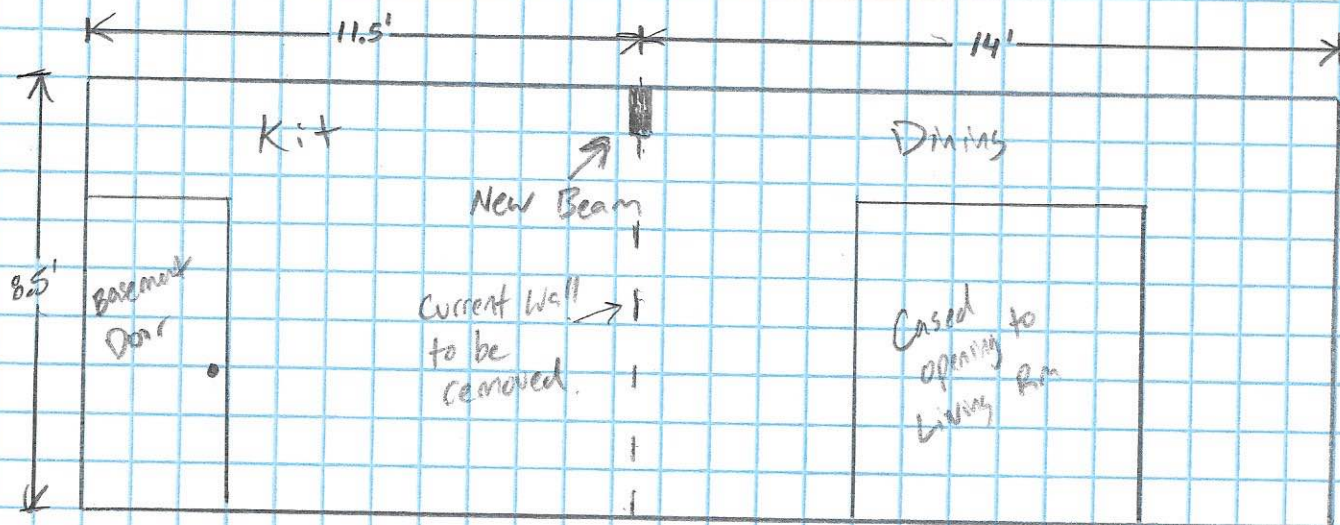 11.5'
14'
Kit
Dining
New Beam
8.5'
Basement
Door
Current Wall
to be
removed.
Cased
opening to
Living Rm